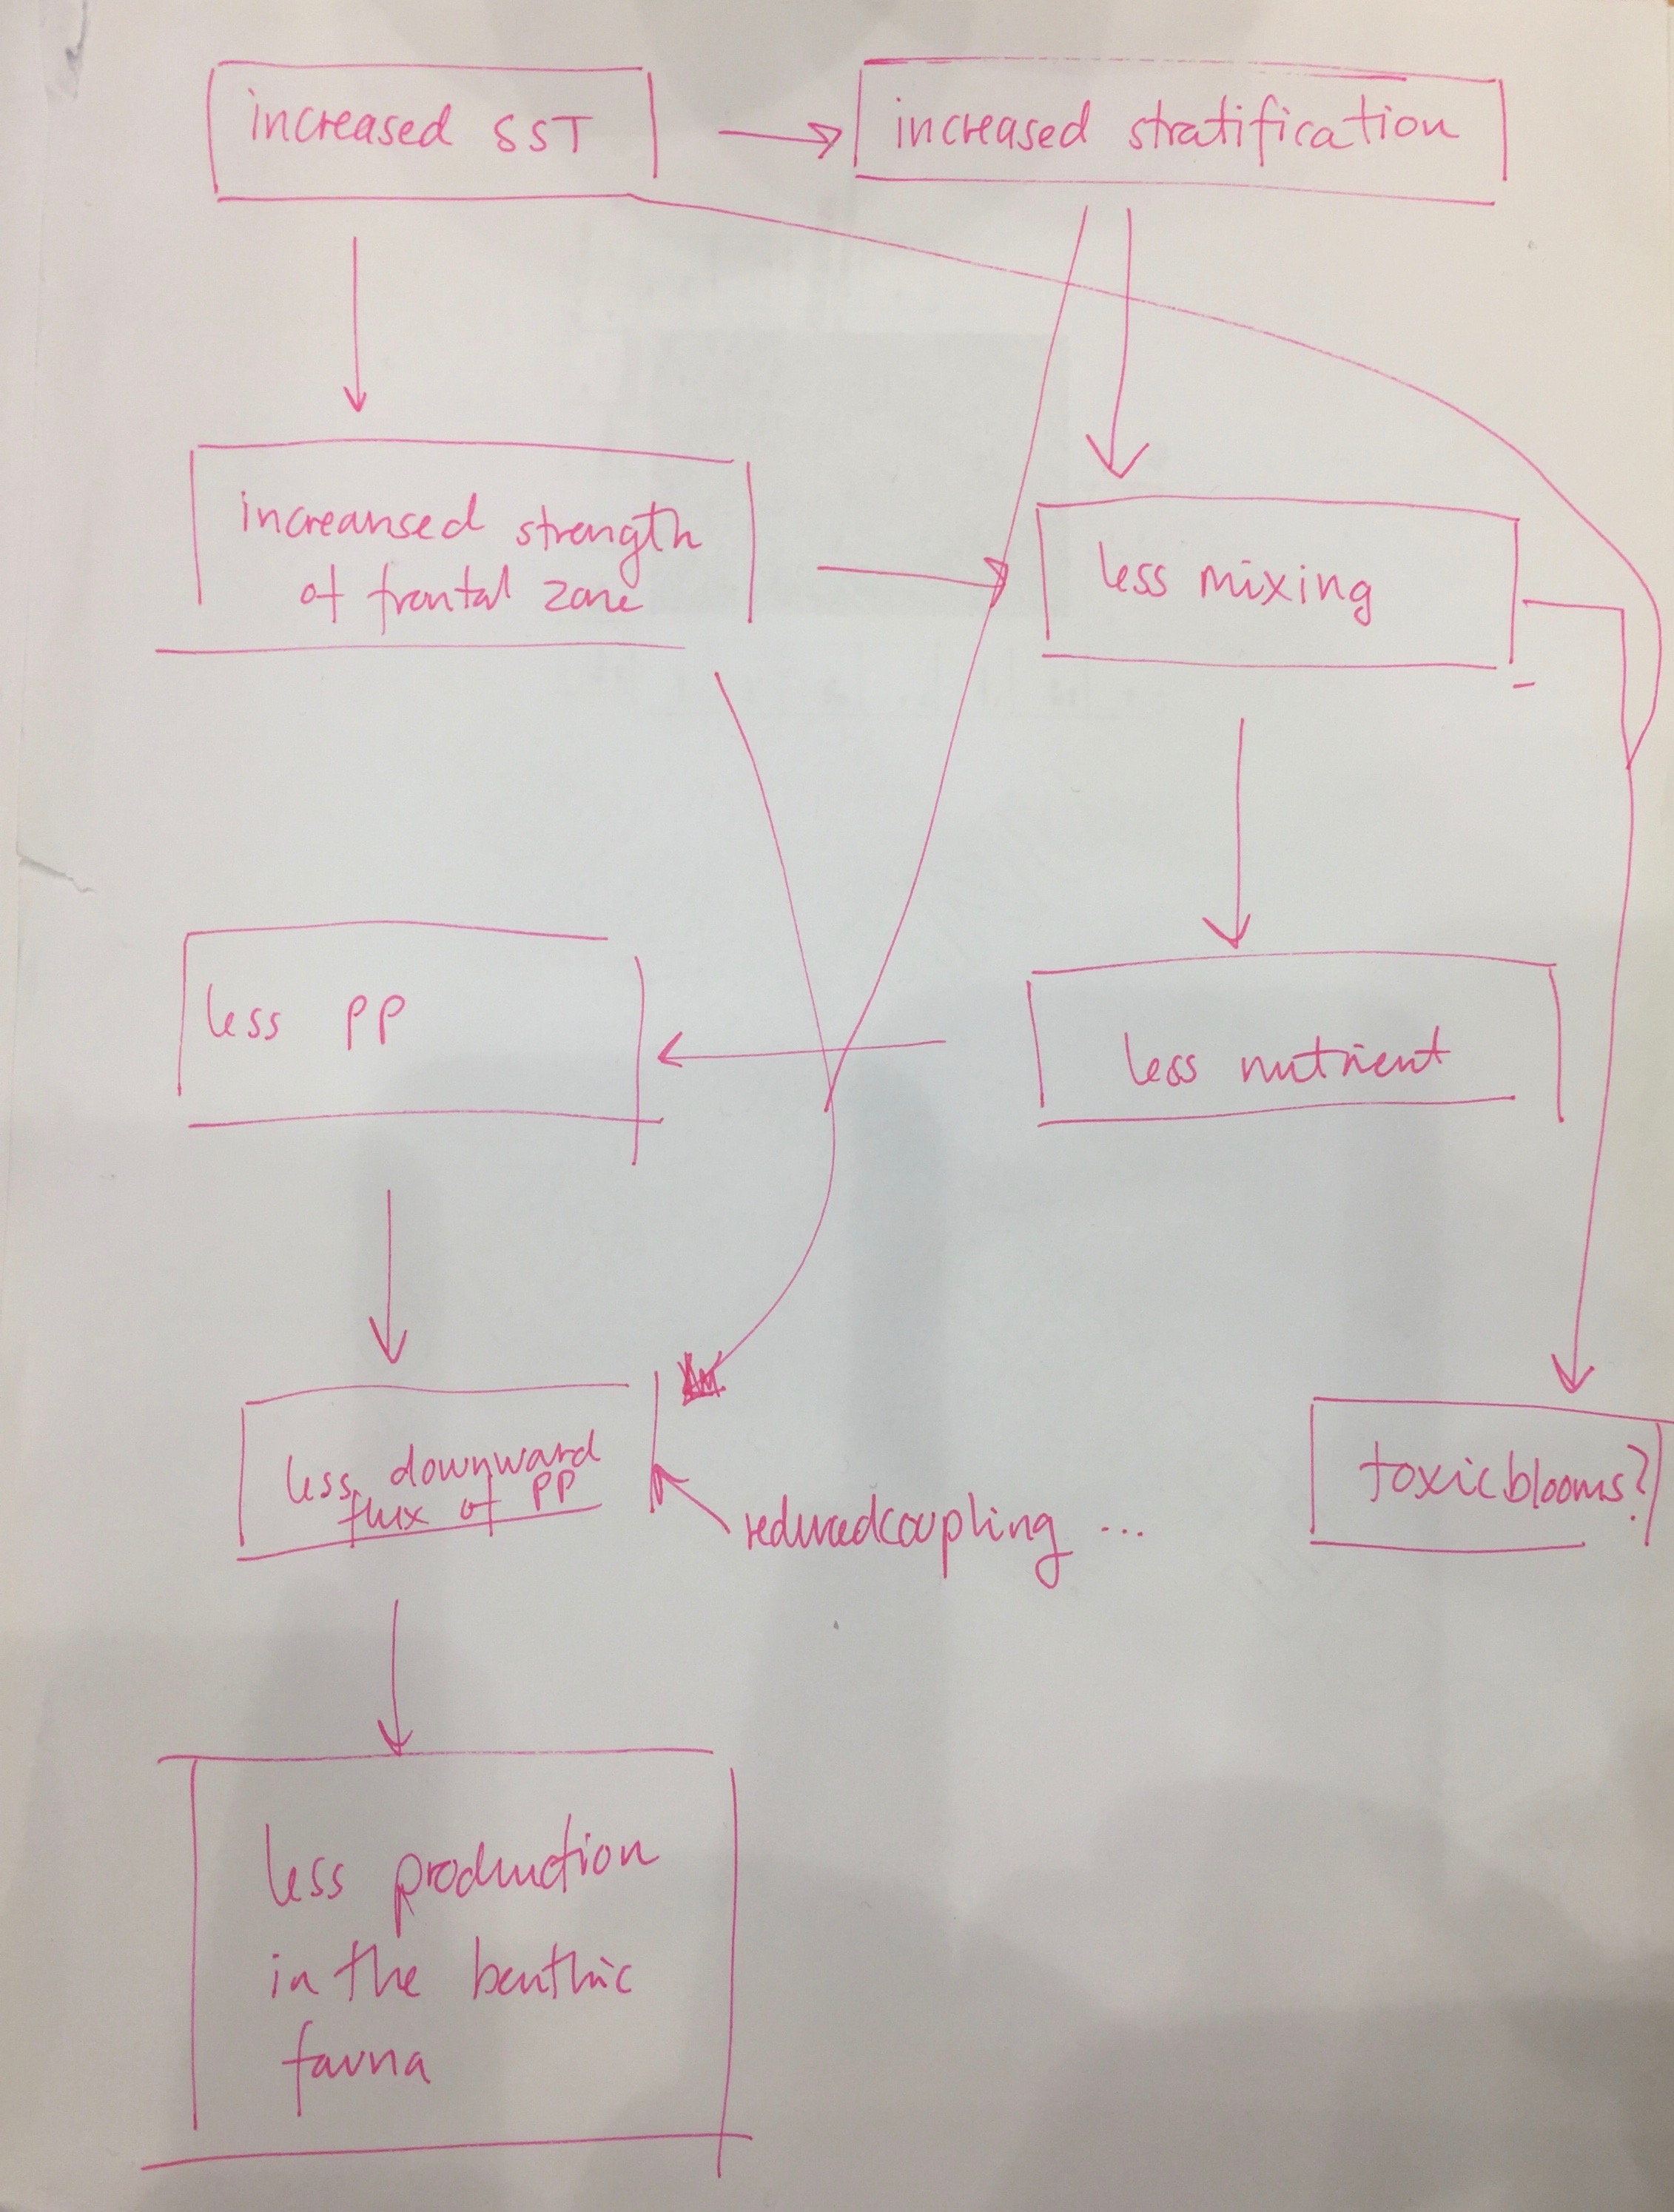 increased SST
increased stratification
increansed strength
of frontal zone
less mixing
less PP
less nutrient
less downward
flux of PP
reducedcoupling ...
toxicblooms?
less production
in the benthic
fauna